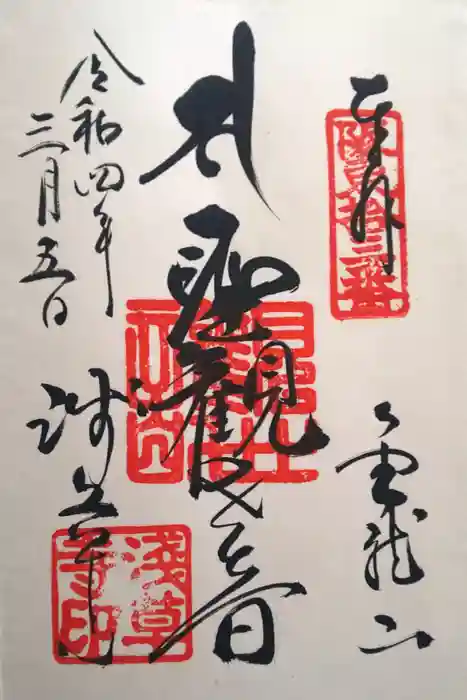 奉拝
坂東拾三番
金龍山
聖観世音
浅草寺
浅草寺印
令和四年
三月五日